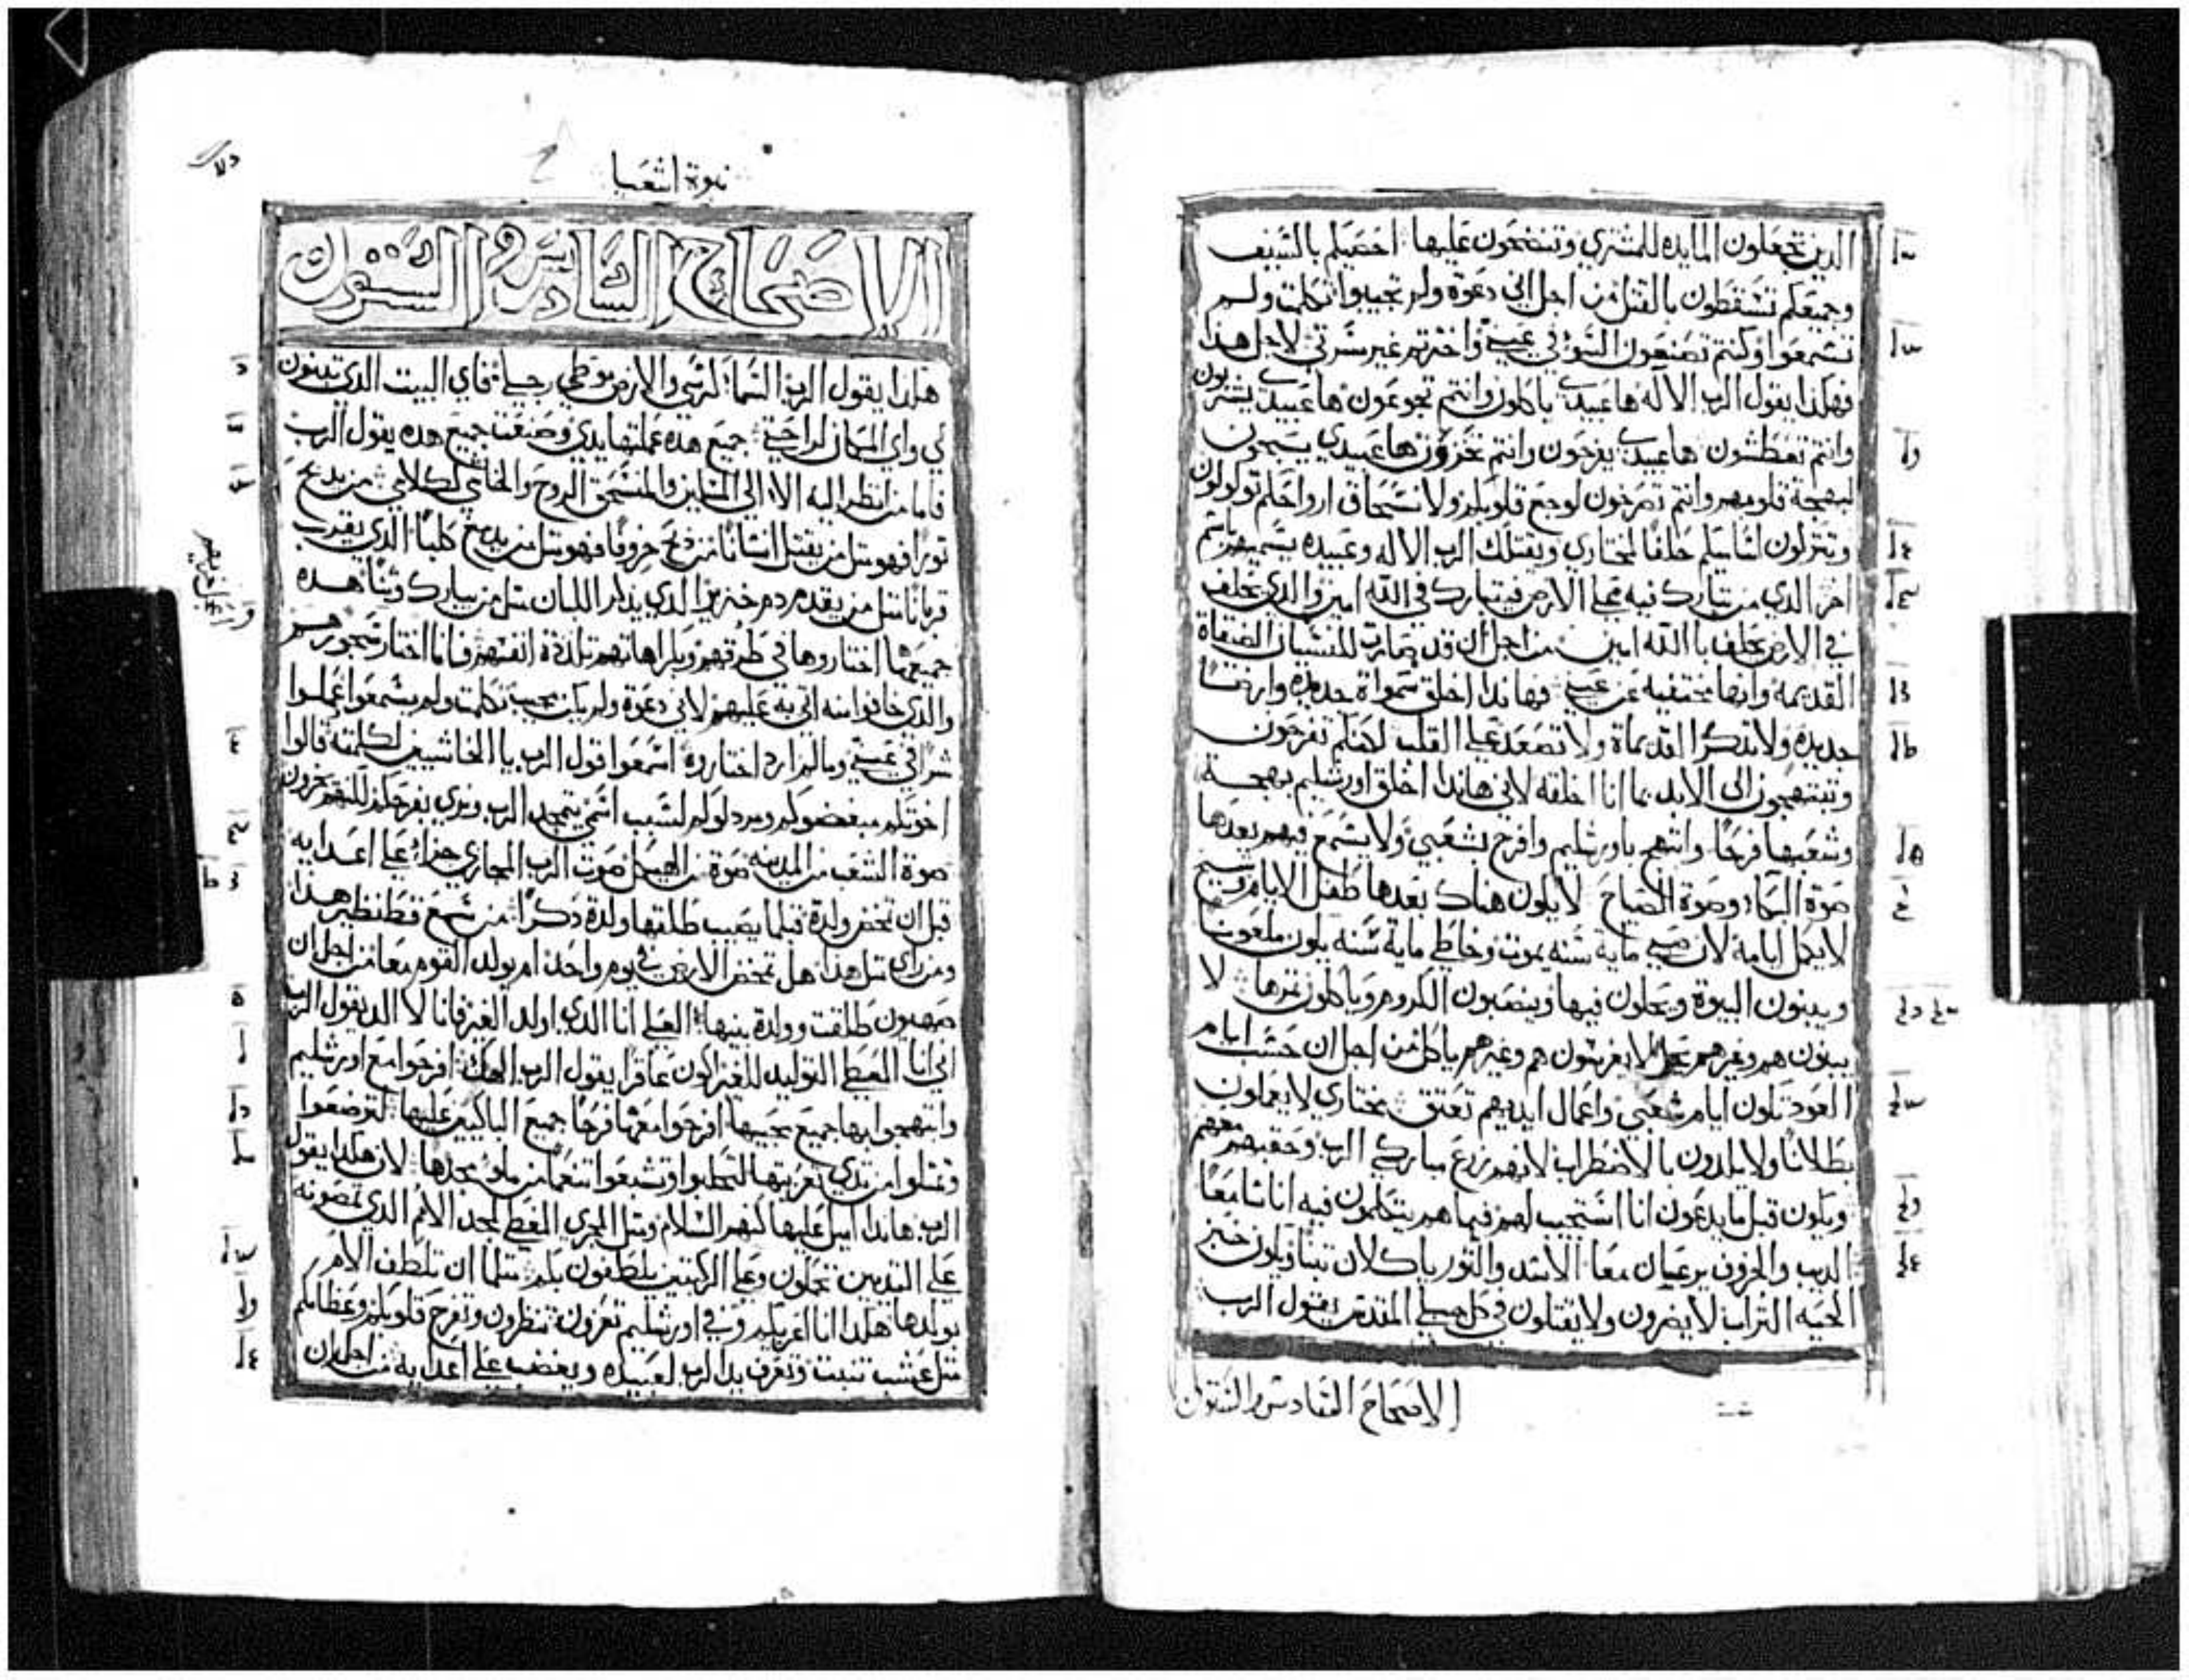 الذين تجعلون المايده للمشتري وتنضحون عليها احصيكم بالسيف
وجميعكم تسقطون بالقتل من اجل اني دعوة ولم تجيبوا تكلمت ولم
تسمعوا وكنتم تصنعون السو في عيني واخترتم غير مسرتي لاجل هذا
فهكذا يقول الرب الاله ها عبيدي ياكلون وانتم تجوعون ها عبيدي يشربون
وانتم تعطشون ها عبيدي يفرحون وانتم تخزون ها عبيدي يسبحون
لبهجة قلوبهم وانتم تصرخون لوجع قلوبكم ولانسحاق ارواحكم تولولون
وتتركون اسمكم حلفا لمختاري ويقتلك الرب الاله وعبيده يسميهم باسم
اخر الذي من تبارك فيه علي الارض فيتبارك في الله امين والذي يحلف
في الارض يحلف باالله امين من اجل ان قد صارت للنسيان الضيقاة
القديمه وانها مختفيه عن عيني فهاندا اخلق سمواة جديده وارضا
جديده ولا تدكر القديماة ولا تصعد علي القلب لكنكم تفرحون
وتبتهجون الى الابد بما انا اخلقه لاني هاندا اخلق اورشليم بهجة
وشعبها فرحا وابتهج باورشليم وافرح بشعبي ولا يسمع فيهم بعدها
صوة البكاء وصوة الصياح لا يكون هناك بعدها طفل الايام وشيخ
لا يكمل ايامه لان صبي ماية سنه يموت وخاطي ماية سنه يكون ملعونا
ويبنون البيوة ويحلون فيها وينصبون الكروم وياكلون ثمرها لا
يبنون هم وغيرهم يحل لا يغرسون هم وغيرهم ياكل من اجل ان حسب ايام
العود تكون ايام شعبي واعمال ايديهم تعتق مختاري لا يعملون
بطلانا ولا يلدون بالاضطراب لانهم زرع مباركي الرب وحفبهم معهم
ويكون قبل ما يدعون انا استجيب لهم فيما هم يتكلمون فيه انا سامعا
الديب والخروف يرعيان معا الاسد والثور ياكلان تبنا ويكون خبز
الحيه التراب لا يضرون ولا يقتلون في كل جبلي المقدس يقول الرب
الاصحاح السادس والستون
نبوة اشعيا
الاصحاح السادس والستون
هكذا يقول الرب السماء كرسي والارض موطي رجلي فاي البيت الذي تبنون
لي واي المكان لراحتي جميع هذه عملتها يدي وصنعت جميع هذه يقول الرب
فاما من انظر اليه الا الي المسكين والمنسحق الروح والخايف لكلامي من يدبح
ثورا فهو مثل من يقتل انسانا من دبح خروفا فهو مثل من يدبح كلبا الذي يقرب
قربانا مثل من يقدم دم خنزير الذي يذكر اللبان مثل من يبارك وثنا هذه
جميعها اختاروها في طرقهم وبكراهاتهم تلددة انفسهم فانا اختار سخريهم
والذي خافوا منه اتي به عليهم لاني دعوة ولم يكن مجيب تكلمت ولم يسمعوا عملوا
شرا في عيني وما لم ارد اختاروه اسمعوا قول الرب يا الخاشيين لكلمته قالوا
اخوتكم مبغضوكم ومردلوكم لسبب اسمي يتمجد الرب ونري بفرحكم لكنهم يخزون
صوة الشعب من المدينه صوة من الهيكل صوت الرب المجازي جزاء علي اعدايه
قبل ان تمخض ولدة قبلما يصيب طلقها ولدة دكرا من سمع قط نظير هذا
ومن راي مثل هذا هل تمخض الارض في يوم واحد ام يولد القوم معا من اجل ان
صهيون طلقت وولدة بنيها العلي انا الذي اولد الغير فانا لا الد يقول الرب
اني انا المعطي التوليد للغير اكون عاقرا يقول الرب الهك افرحوا مع اورشليم
وابتهجوا بها جميع محبيها افرحوا معها فرحا جميع الباكيين عليها لترضعوا
وتمتلوا من تدي تعزيتها لتحلبوا وتشبعوا تنعما من ملو مجدها لان هكذا يقول
الرب هاندا اميل عليها كنهر السلام ومثل المجري المغطي لمجد الامم الذي تمصونه
علي الثديين تحملون وعلي الركبتين يلطفون بكم مثلما ان تلطف الام
بولدها هكذا انا اعزيكم وفي اورشليم تعزون تنظرون وتفرح قلوبكم وعظامكم
مثل عشب تنبت وتعرف يد الرب لعبيده ويغضب علي اعدايه من اجل ان